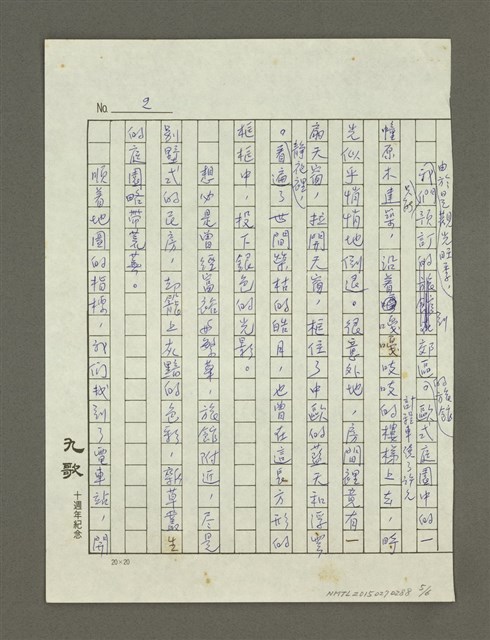 No. 2
由於是觀光旺季，到
我們預訂的旅館郊區的歐式庭園中的一
只能
的旅館
計程車駛了許久
幢原木建築，沿著嘎嘎吱吱的樓梯上去，時
光似乎悄悄地倒退。很意外地，房間裡竟有一
扇天窗，拉開天窗，框住了中歐的藍天和浮雲
靜夜裡，
。看遍了世間榮枯的皓月，也曾在這長方形的
框框中，投下銀色的光影。
想必是曾經富麗繁華，旅館附近，盡是
別墅式的民房，卻 上灰黯的色彩，草叢生
的庭園略帶荒蕪。
順着地圖的指標，我們找到了電車站，開
九歌
十週年紀念
20×20
NMTL20150070088 5/6